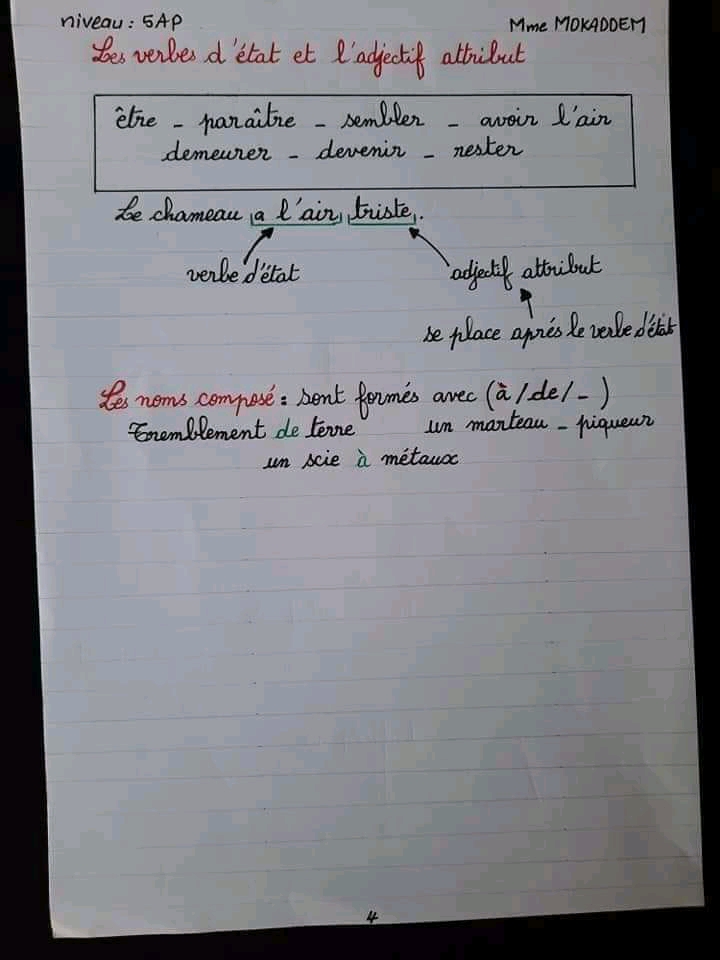 niveau : 5AP Mme MOKADDEM
Les verbes d'état et l'adjectif attribut
être - paraître - sembler - avoir l'air
demeurer - devenir - rester
Le chameau a l'air triste.
verbe d'état adjectif attribut
se place aprés le verbe d'état
Les noms composé : sont formés avec (à / de / - )
Tremblement de terre un marteau - piqueur
un scie à métaux
4